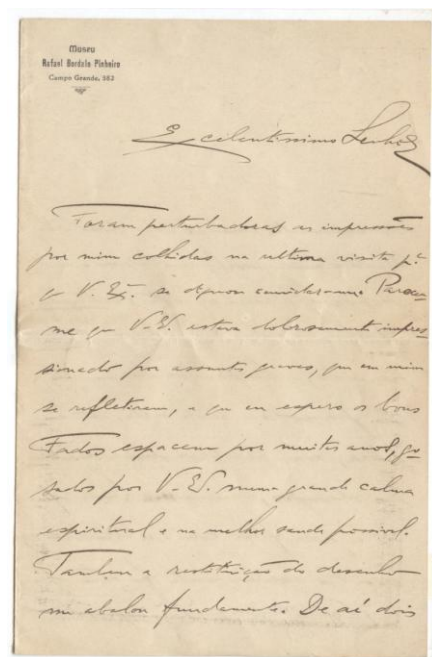 Museu
Rafael Bordalo Pinheiro
Campo Grande, 382
Excelentissimo Senhor
Foram perturbadoras as impressões
por mim colhidas na ultima visita p.ª
q V. Ex. se dignou convidar-me. Parece-
me q V. E. estava dolorosamente impres-
sionado por assuntos graves, que em mim
se refletiram, e que eu espero os bons
Fados espacem por muitos anos, go-
sados por V. E. numa grande calma
espiritual e na melhor saude possivel.
Tambem a restituição do desenho
me abalou fundamente. De aí dois